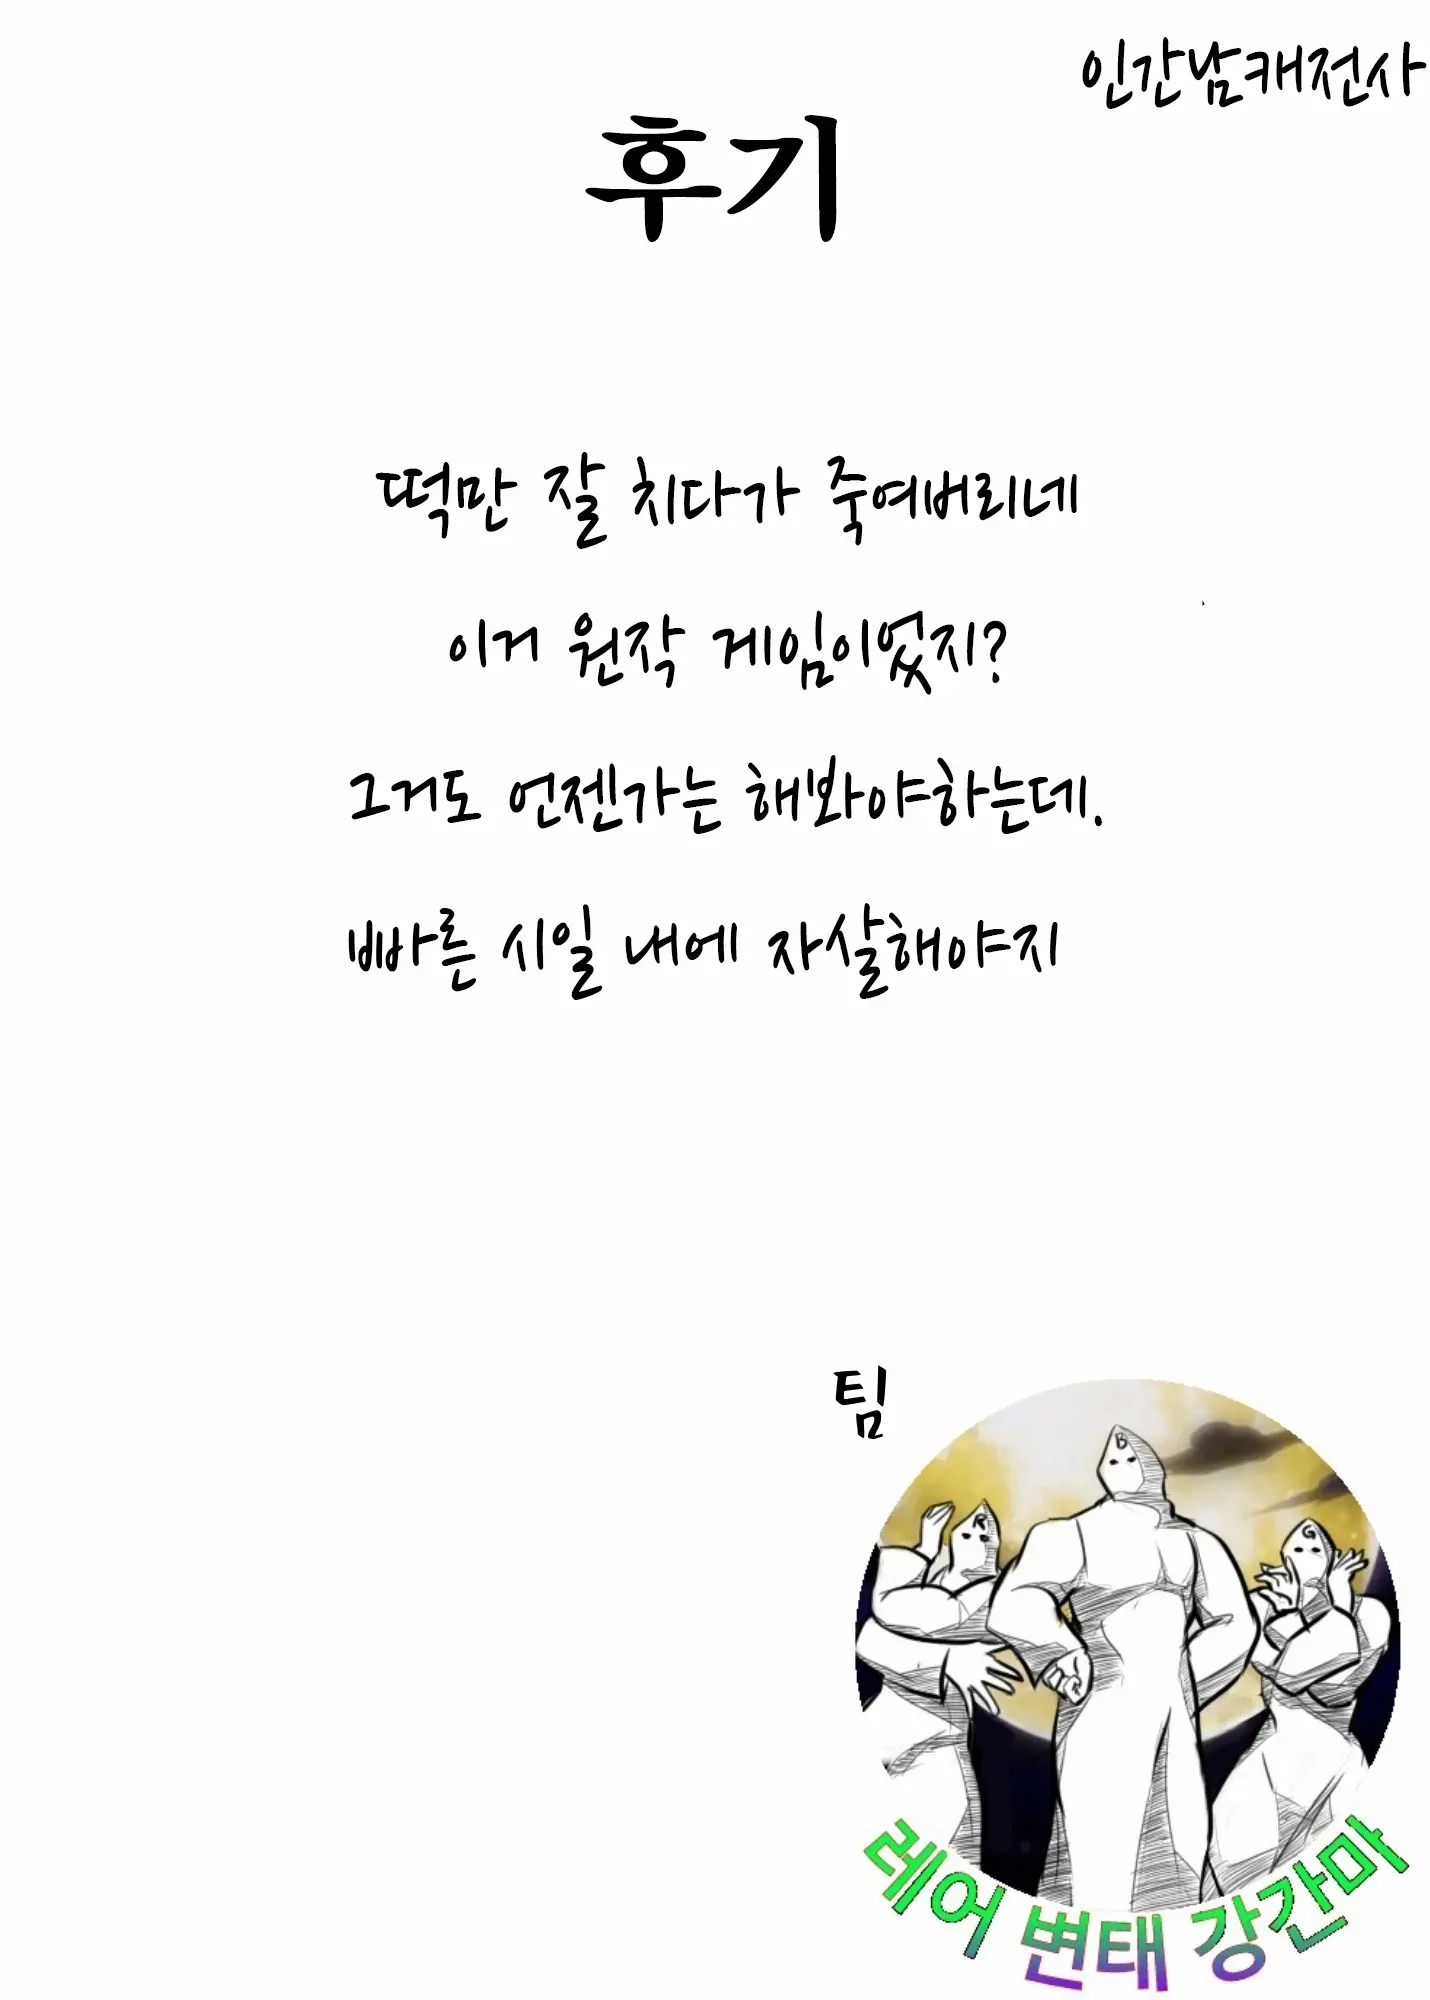 인간남캐전사
후기
떡만 잘 치다가 죽여버리네
이거 원작 게임이었지?
그거도 언젠가는 해봐야하는데.
빠른 시일 내에 자살해야지
팀
B
R
G
레어 변태 강간마